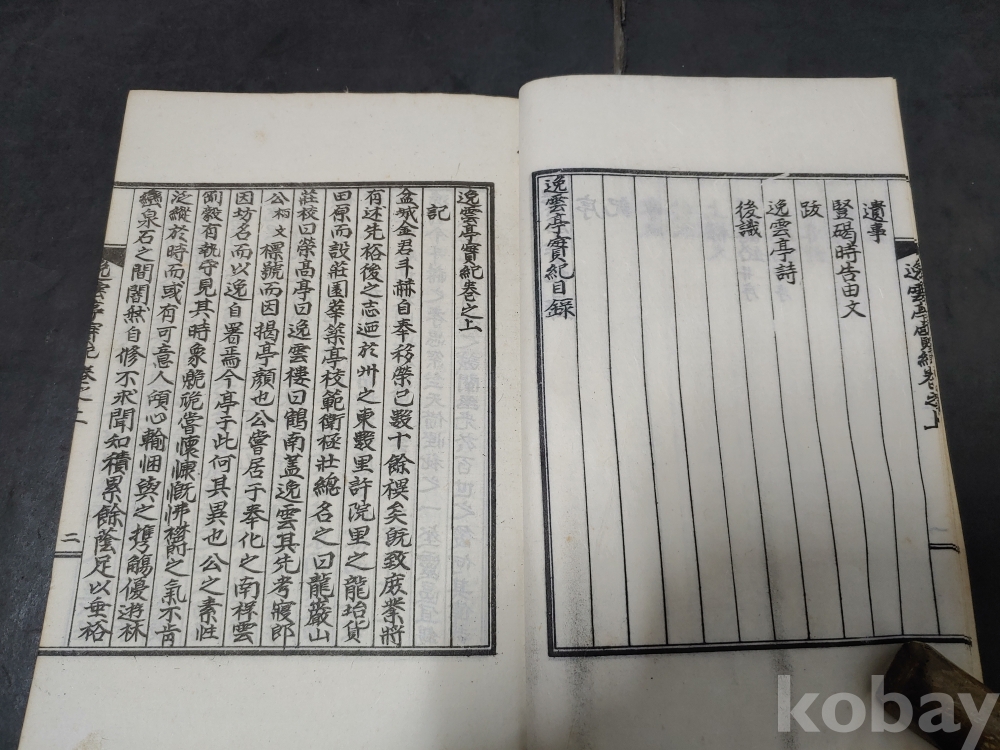 遺事
竪碣時告由文
跋
逸雲亭詩
後識
逸雲亭實紀目錄
逸雲亭實紀卷之上
記
盆城金君斗赫自奉移榮已數十餘禩矣旣致庥業將
有述先裕後之志迺於州之東數里許院里之龍坮貨
田原而設莊園華築亭校範衛極壯總名之曰龍巖山
莊校曰榮高亭曰逸雲樓曰鶴南蓋逸雲其先考寢郎
公柄文標號而因揭亭顔也公嘗居于奉化之南桿雲
因坊名而以逸自署焉今亭于此何其異也公之素性
剛毅有執守見其時象 嘗懷慷慨怫鬱之氣不肯
泛縱於時而或有可意人傾心輸悃與之携觴優遊林
巒泉石之間闇然自修不求聞知積累餘蔭足以垂裕
二
逸雲亭實紀卷之上
kobay